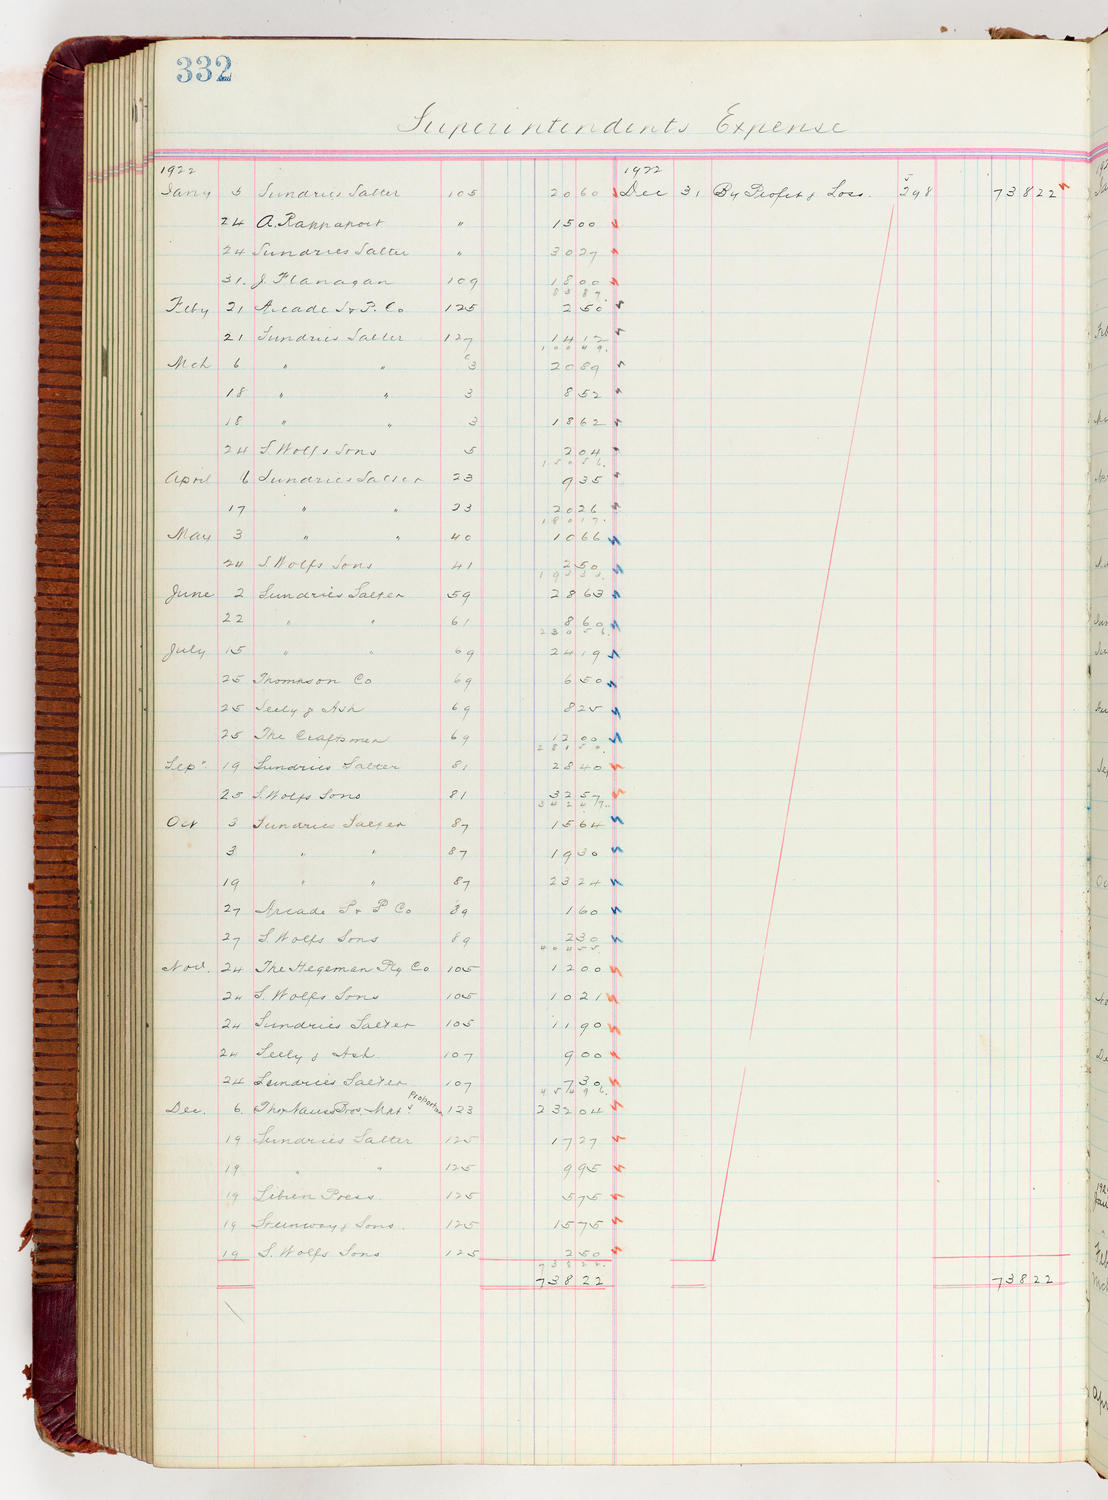 332
Superintendents Expense
1922 1922
Jany 5 Sundries Salter 105 20 60 Dec 31 By Profit & Loss. J 298 738 22
24 A. Rappaport " 15 00
24 Sundries Salter " 30 27
31. J. Flanagan 109 18 00
83 87.
Feby 21 Arcade S & P. Co 125 2 50
21 Sundries Salter 127 14 12
100 49.
Mch 6 " " C 3 20 89
18 " " 3 8 52
18 " " 3 18 62
24 S. Wolfs Sons 5 2 04
150 56.
April 6 Sundries Salter 23 9 35
17 " " 23 20 26
180 17.
May 3 " " 40 10 66
24 S. Wolfs Sons 41 2 50
193 33.
June 2 Sundries Salter 59 28 63
22 " " 61 8 60
230 56.
July 15 " " 69 24 19
25 Thompson Co 69 6 50
25 Seely & Ash 69 8 25
25 The Craftsmen 69 12 00
281 50.
Sep" 19 Sundries Salter 81 28 40
25 S. Wolfs Sons 81 32 57
342 47.
Oct 3 Sundries Salter 87 15 64
3 " " 87 19 30
19 " " 87 23 24
27 Arcade S & P Co 89 1 60
27 S. Wolfs Sons 89 2 30
404 55.
Nov. 24 The Hegeman Ptg Co 105 12 00
24 S. Wolfs Sons 105 10 21
24 Sundries Salter 105 11 90
24 Seely & Ash 107 9 00
24 Sundries Salter 107 7 30
454 96.
Dec. 6. Bros. Mkt & Proportion 123 232 04
19 Sundries Salter 125 17 27
19 " " 125 9 95
19 Press. 125 5 75
19 Steinway & Sons. 125 15 75
19 S. Wolfs Sons 125 2 50
738 22.
738 22 738 22